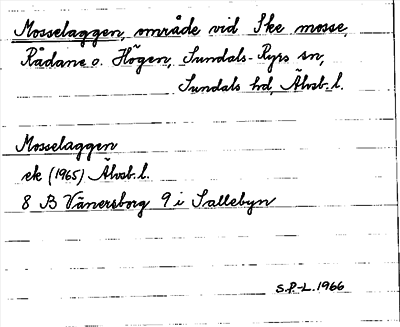 Mosselaggen, område vid Ske mosse,
Rådane o. Högen, Sundals-Ryrs sn,
Sundals hd, Älvsb. l.
Mosselaggen
ek (1965) Älvsb. l.
8 B Vänersborg 9 i Sallebyn
S.P-L. 1966